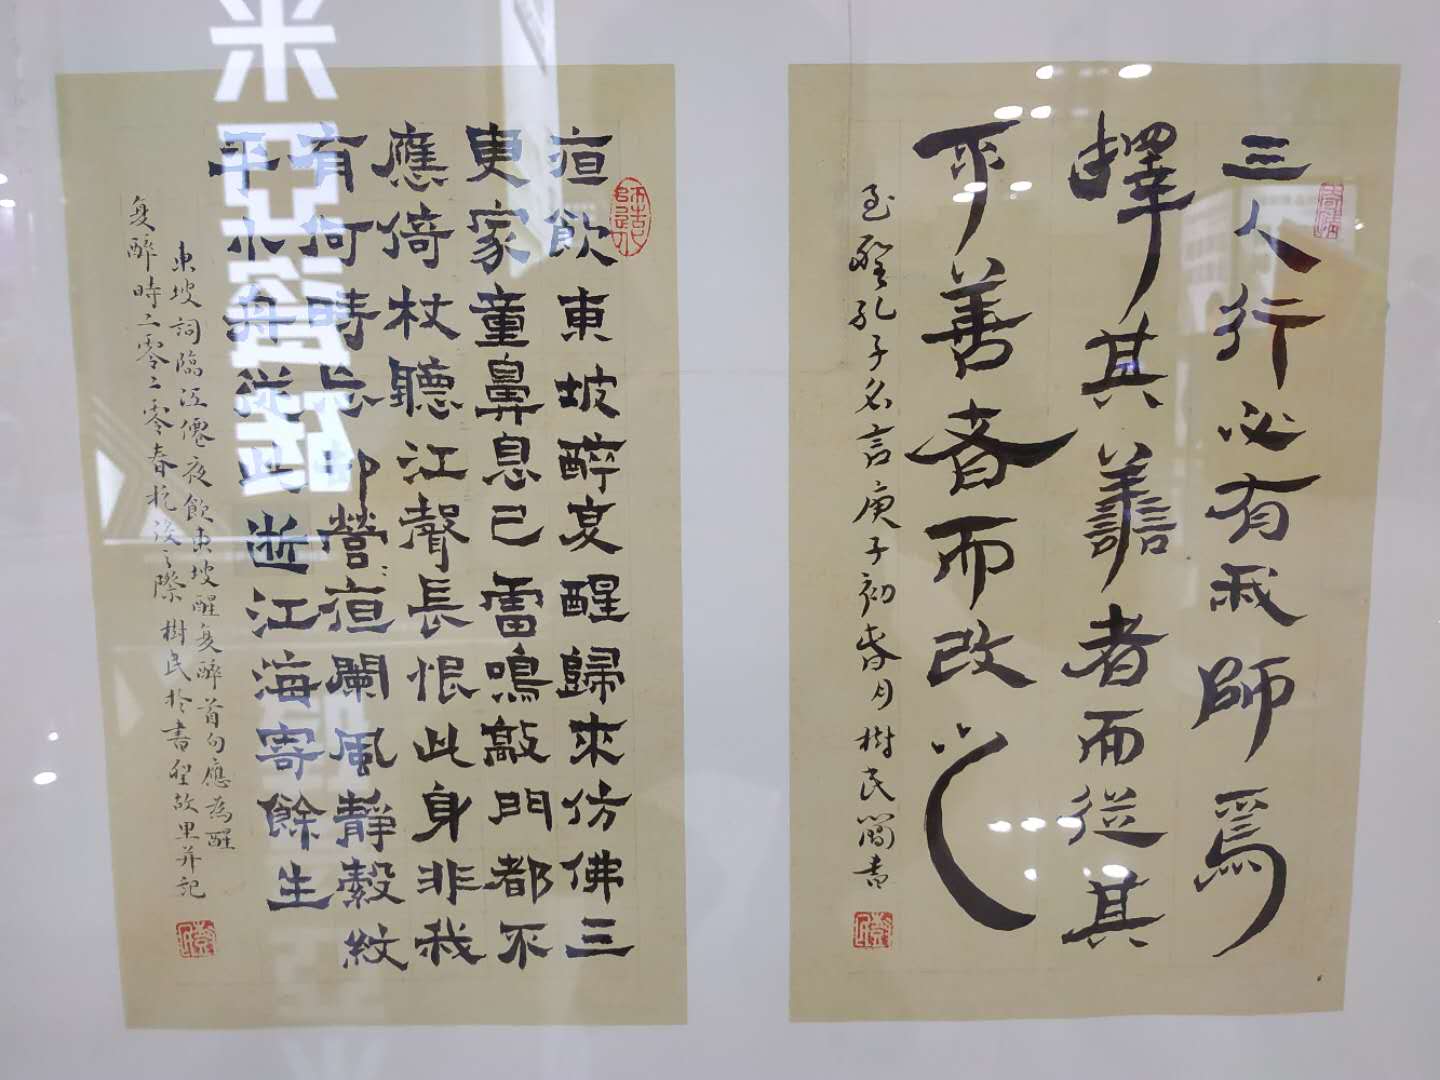 三人行必有我師焉
擇其譱者而從其
不善者而改之
至聖孔子名言庚子初春月樹民簡書
亱飲東坡醉复醒歸來仿佛三
更家童鼻息已雷鳴敲門都不
應倚杖聽江聲長恨此身非我
有何時忘卻營亱闌風靜縠紋
平小舟從此逝江海寄餘生
東坡詞臨江僊夜飲東坡醒复醉首句應為醒
复醉時二零二零春抗疫之際樹民於書聖故里并記